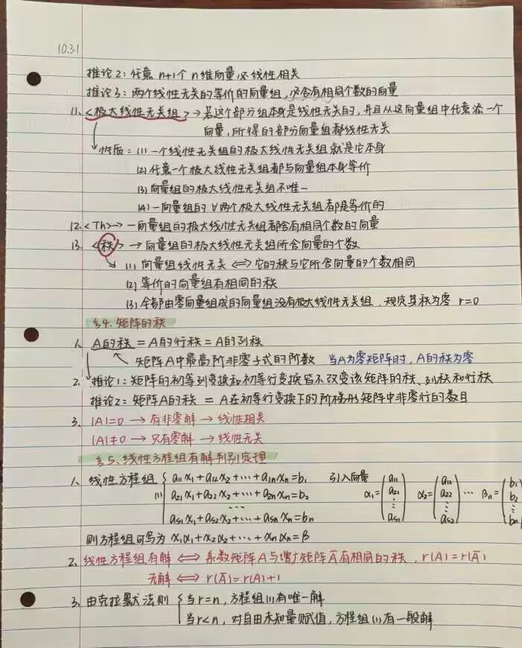 10.31
推论2：任意 n+1个 n维向量必线性相关
推论3：两个线性无关的等价的向量组，必含有相同个数的向量
11、<极大线性无关组> → 若这个部分组本身是线性无关的，并且从这向量组中任意添一个
向量，所得的部分向量组都线性无关
性质：(1) 一个线性无关组的极大线性无关组就是它本身
(2) 任意一个极大线性无关组都与向量组本身等价
(3) 向量组的极大线性无关组不唯一
(4) 一向量组的∀两个极大线性无关组都是等价的
12、<Th> → 一向量组的极大线性无关组都含有相同个数的向量
13、<秩> → 向量组的极大线性无关组所含向量的个数
(1) 向量组线性无关 ⟺ 它的秩与它所含向量的个数相同
(2) 等价的向量组有相同的秩
(3) 全部由零向量组成的向量组没有极大线性无关组，规定其秩为零 r=0
§4、矩阵的秩
1、A的秩 = A的行秩 = A的列秩
矩阵A中最高阶非零子式的阶数 当A为零矩阵时，A的秩为零
2、推论1：矩阵的初等列变换和初等行变换皆不改变该矩阵的秩、列秩和行秩
推论2：矩阵A的秩 = A在初等行变换下的阶梯形矩阵中非零行的数目
3、|A|=0 → 有非零解 → 线性相关
|A|≠0 → 只有零解 → 线性无关
§5、线性方程组有解判别定理
1、线性方程组 (1) { a₁₁x₁+a₁₂x₂+⋯+a₁ₙxₙ=b₁ 引入向量 α₁=(a₁₁ α₂=(a₁₂ ⋯ βₙ=(b₁
a₂₁x₁+a₂₂x₂+⋯+a₂ₙxₙ=b₂ a₂₁ a₂₂ b₂
⋯ ⋮ ⋮ ⋮
aₛ₁x₁+aₛ₂x₂+⋯+aₛₙxₙ=bₙ aₛ₁) aₛ₂) bₙ)
则方程组可写为 x₁α₁+x₂α₂+⋯+xₙαₙ=β
2、线性方程组有解 ⟺ 系数矩阵A与增广矩阵Ā有相同的秩，r(A)=r(Ā)
无解 ⟺ r(Ā)=r(A)+1
3、由克拉默法则 { 当r=n，方程组(1)有唯一解
当r<n，对自由未知量赋值，方程组(1)有一般解